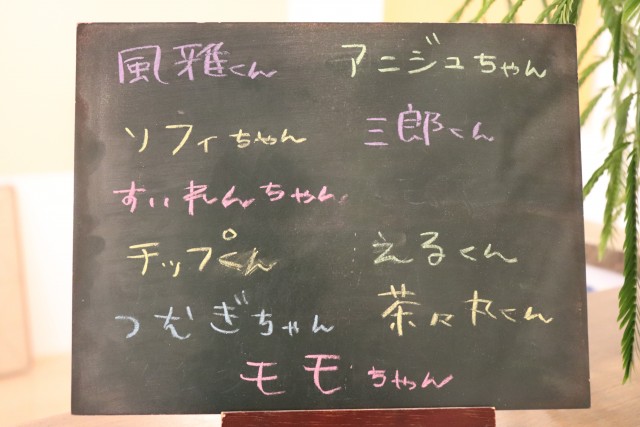 風雅くん アニジュちゃん
ソフィちゃん 三郎くん
すいれんちゃん
チップくん えるくん
つむぎちゃん 茶々丸くん
モモちゃん